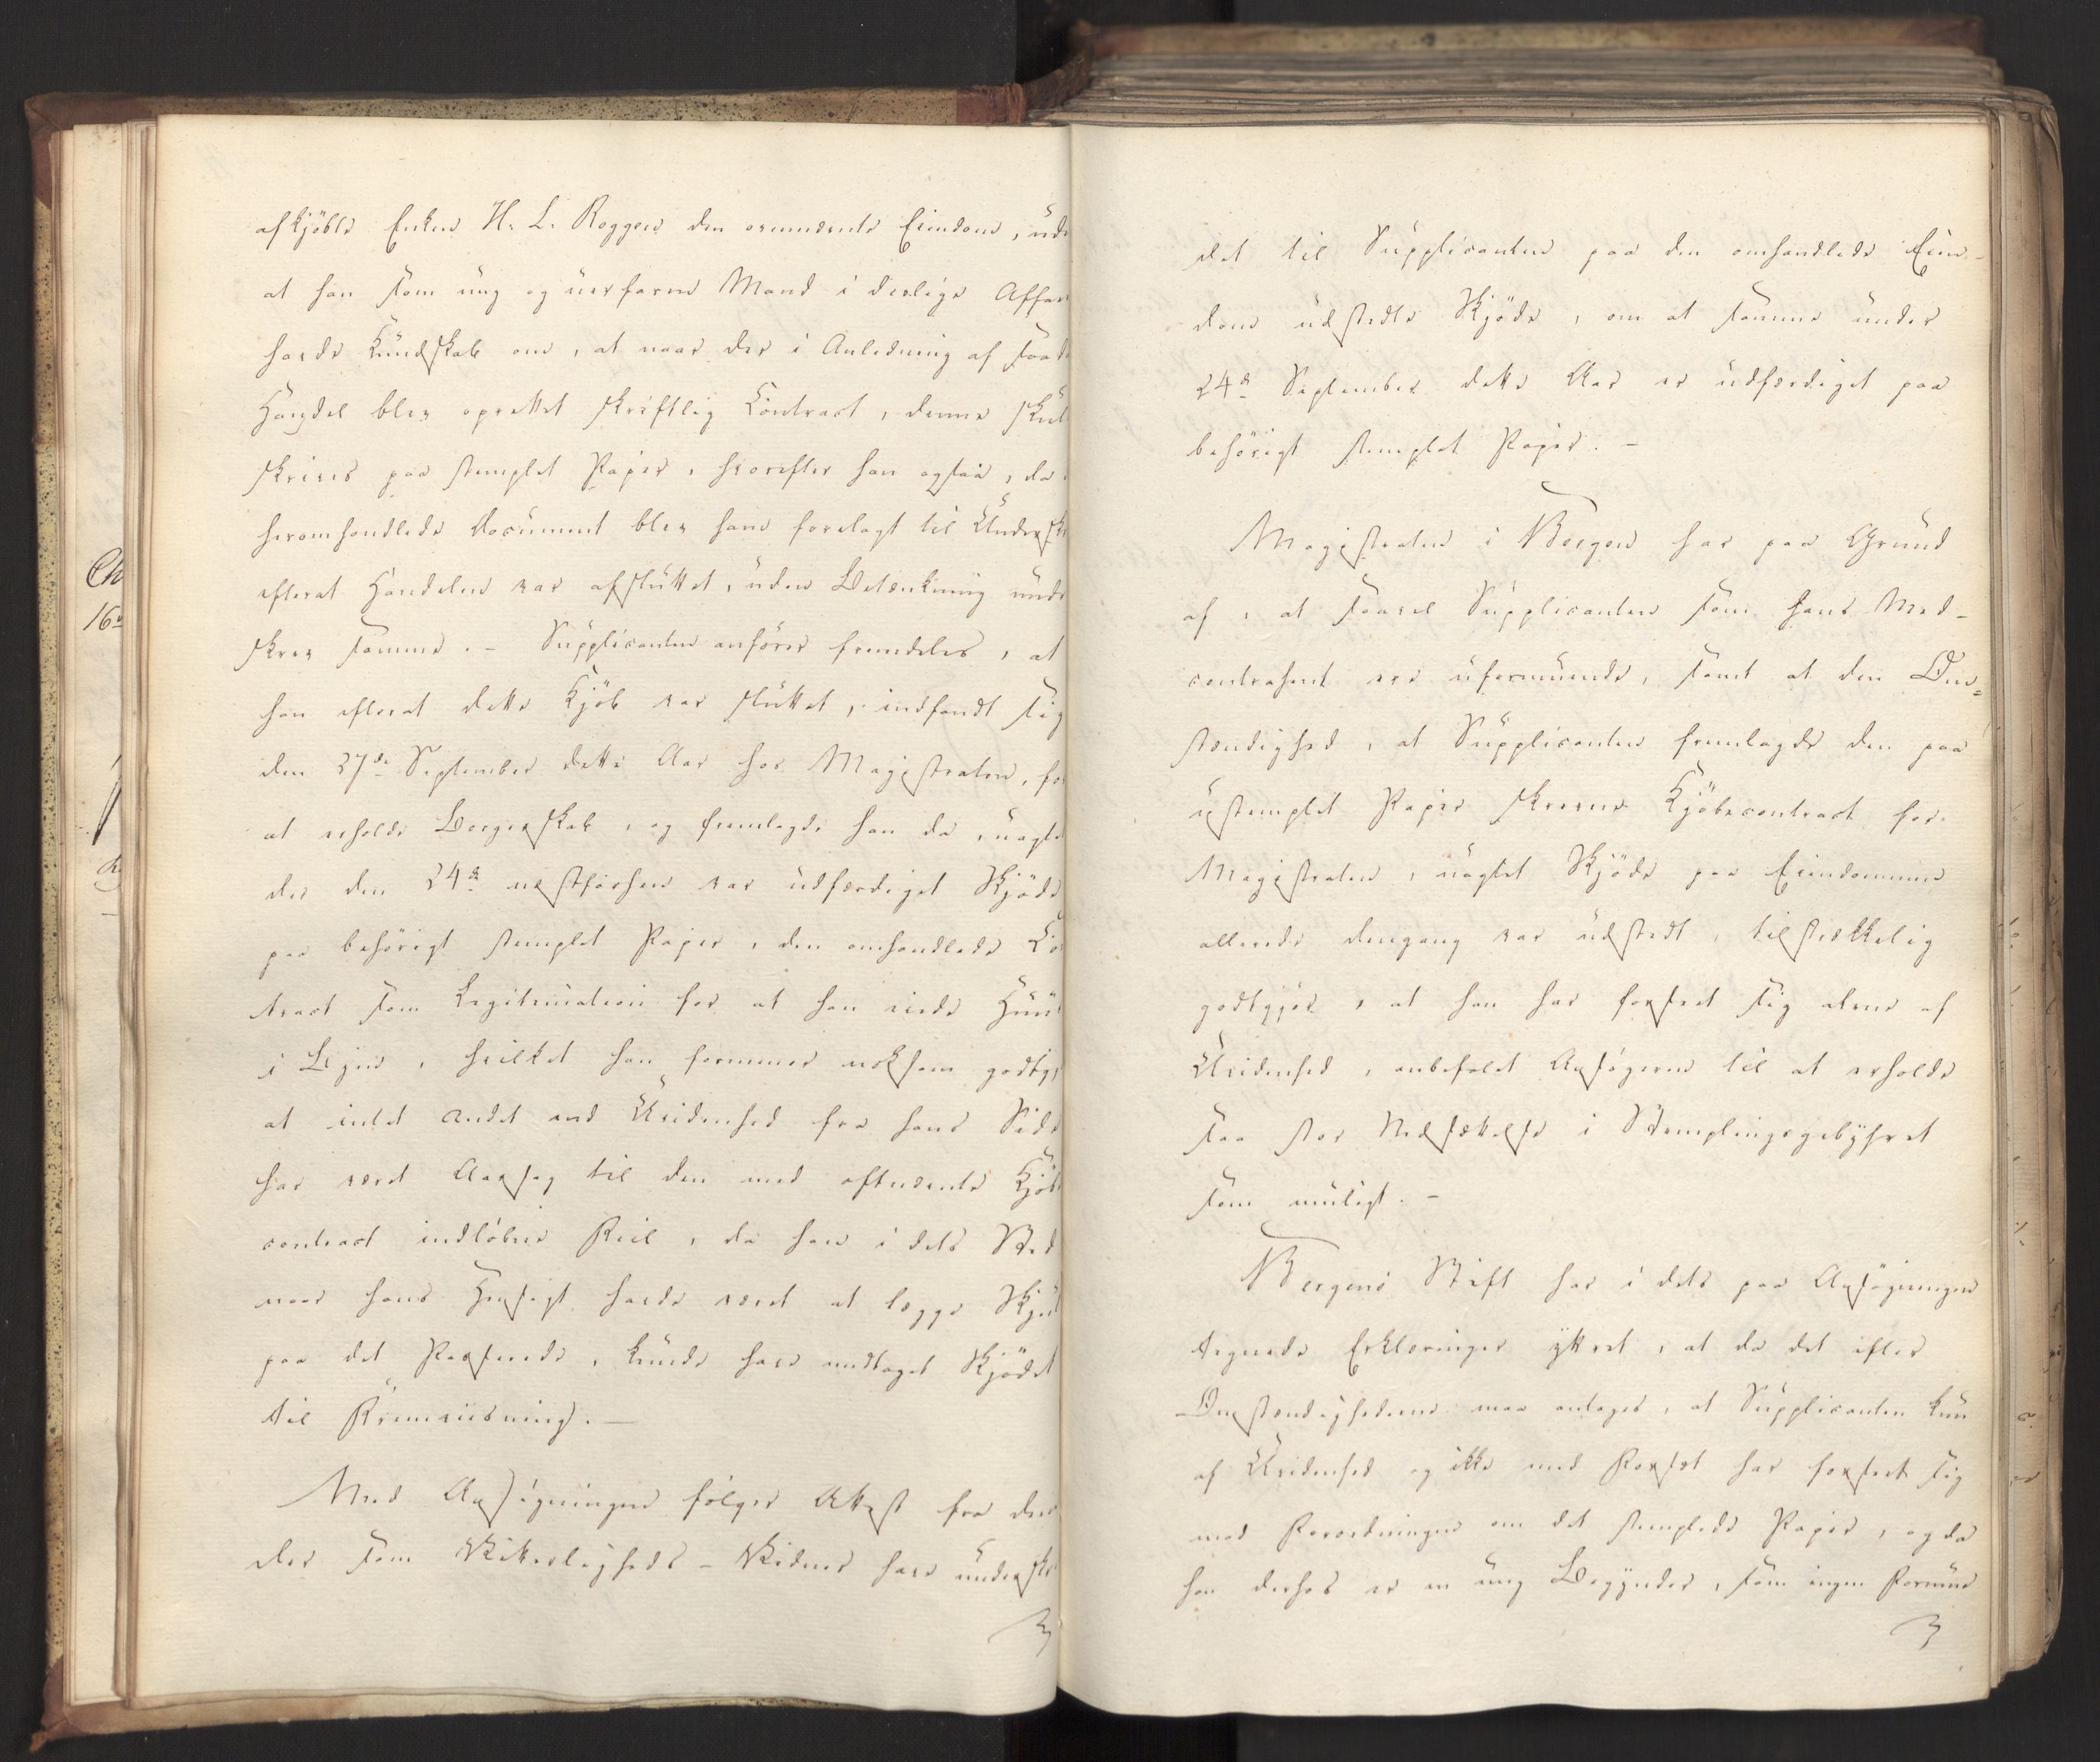 afkjöbte Enken H. L. Roggen den ovennævnte Eiendom, ude
at han som ung og uerfaren Mand i deslige Affær
havde Kundskab om, at naar der i Anledning af saad
Handel blev oprettet skriftlig Contract, denne skul
skrives paa stemplet Papir, hvorefter han ogsaa, da
heromhandlede Document blev ham forelagt til Undersk
efterat Handelen var afsluttet, uden Betænkning unde
skrev samme. - Supplicanten anförer fremdeles, at
han efterat dette Kjöb var sluttet, indfandt sig
den 27de September dette Aar hos Magistraten, for
at erholde Borgerskab, og fremlagde han da, uagte
der den 24de næstforhen var udfærdiget Skjöde
paa behörigt stemplet Papir, den omhandlede Co
tract som Legitimation for at han eiede Huus
i Byen, hvilket han formener noksom godtgj
at intet andet end Uvidenhed fra hans Side
har været Aarsag til den med oftnævnte Kjöb
contract indlöbne Feil, da han i dets Sted
naar hans Hensigt havde været at lægge Skjul
paa det Passerede, kunde have medtaget Skjödet
til Foreviisning. -
Med Ansögningen fölger Attest fra dem
der som Vitterligheds-Vidner have undersk
Ch
16
det til Supplicanten paa den omhandlede Eien-
dom udstedte Skjöde, om at samme under
24de September dette Aar er udfærdiget paa
behörigt stemplet Papir. -
Magistraten i Bergen har paa Grund
af, at saavel Supplicanten som hans Med-
contrahent ere uformuende, samt at den Om-
stændighed, at Supplicanten fremlagde den paa
ustemplet Papir skrevne Kjöbecontract for
Magistraten, uagtet Skjöde paa Eiendommen
allerede dengang var udstedt, tilstrækkelig
godtgjör, at han har forseet sig alene af
Uvidenhed, anbefalet Ansögeren til at erholde
saa stor Nedsættelse i Stemplingsgebyhret
som muligt. -
Bergens Stift har i dets paa Ansögningen
tegnede Erklæringer yttret, at da det efter
Omstændighederne maa antages, at Supplicanten kun
af Uvidenhed og ikke med Forsæt har forseet sig
mod Forordningen om det stemplede Papir, og da
han derhos er en ung Begynder, som ingen Formue